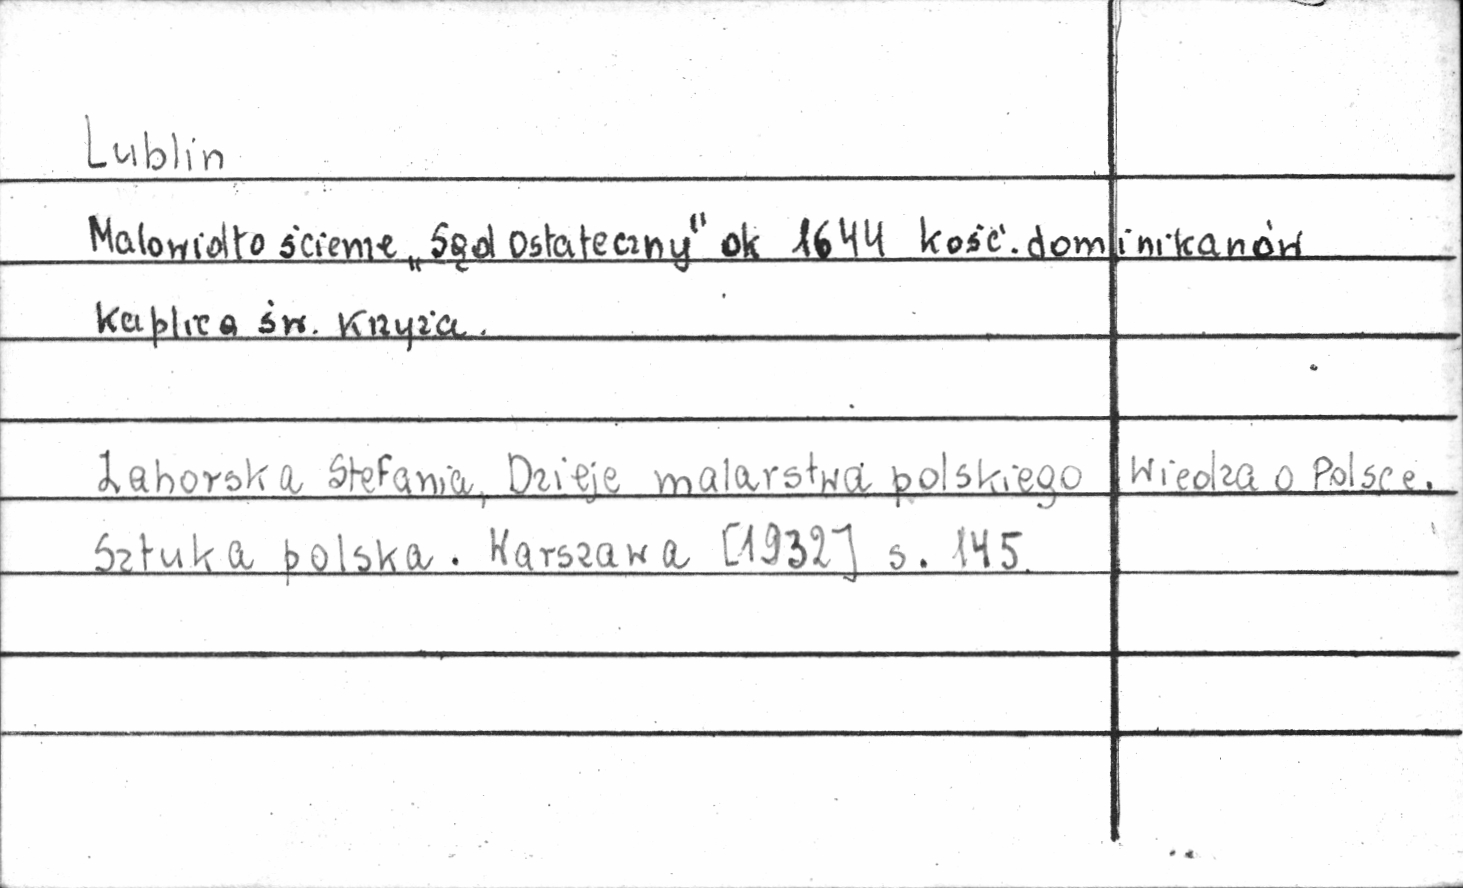 Lublin
Malowidło ścienne „Sąd Ostateczny" ok 1644 kość. dominikanów
kaplica św. Krzyża.
Zahorska Stefania, Dzieje malarstwa polskiego Wiedza o Polsce.
Sztuka polska. Warszawa [1932] s. 145.